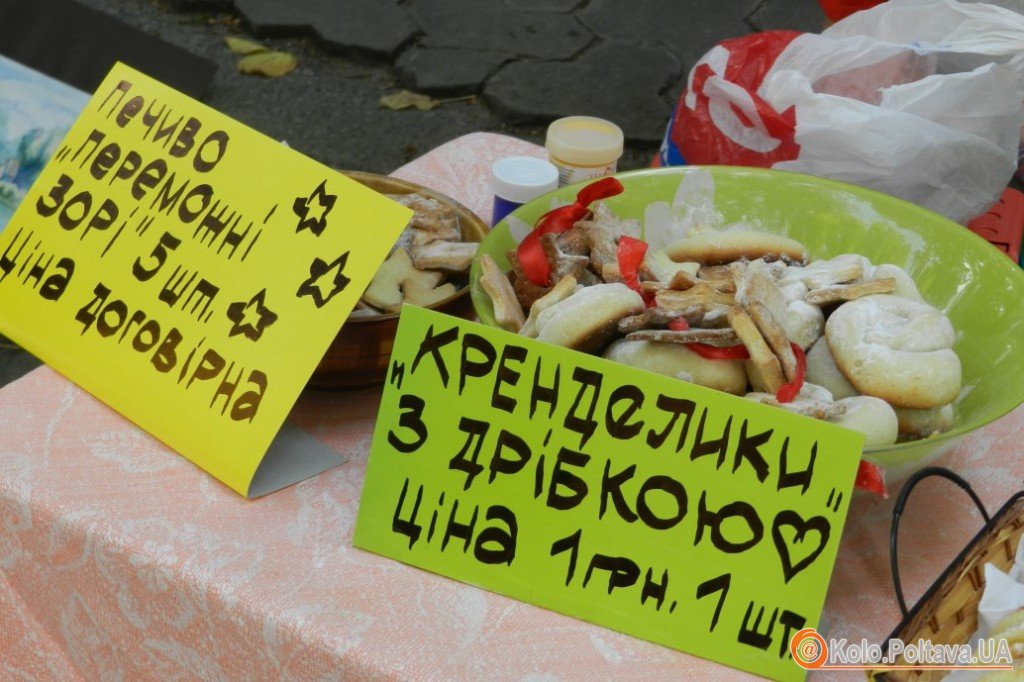 Печиво
„Переможні
зорі" 5 шт.
Ціна договірна
„Кренделики"
з дрібкою
Ціна 1 грн. 1 шт.
@Kolo.Poltava.UA